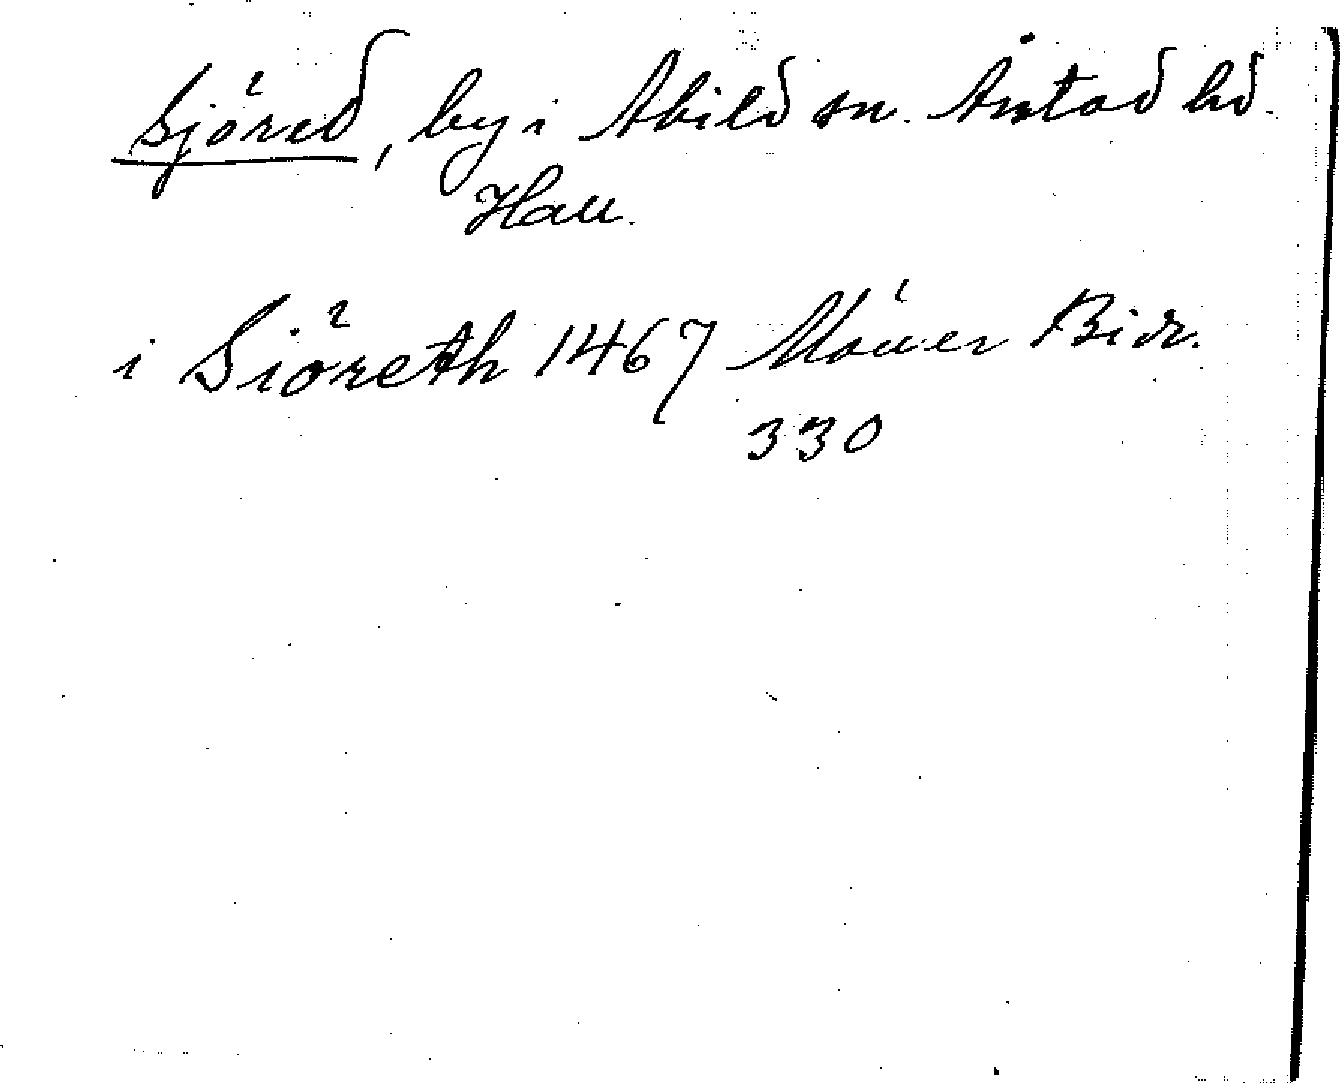 Sjöred, by i Abild sn. Årstad hd.
Hall.
i Siöreth 1467 Möller Bidr.
330